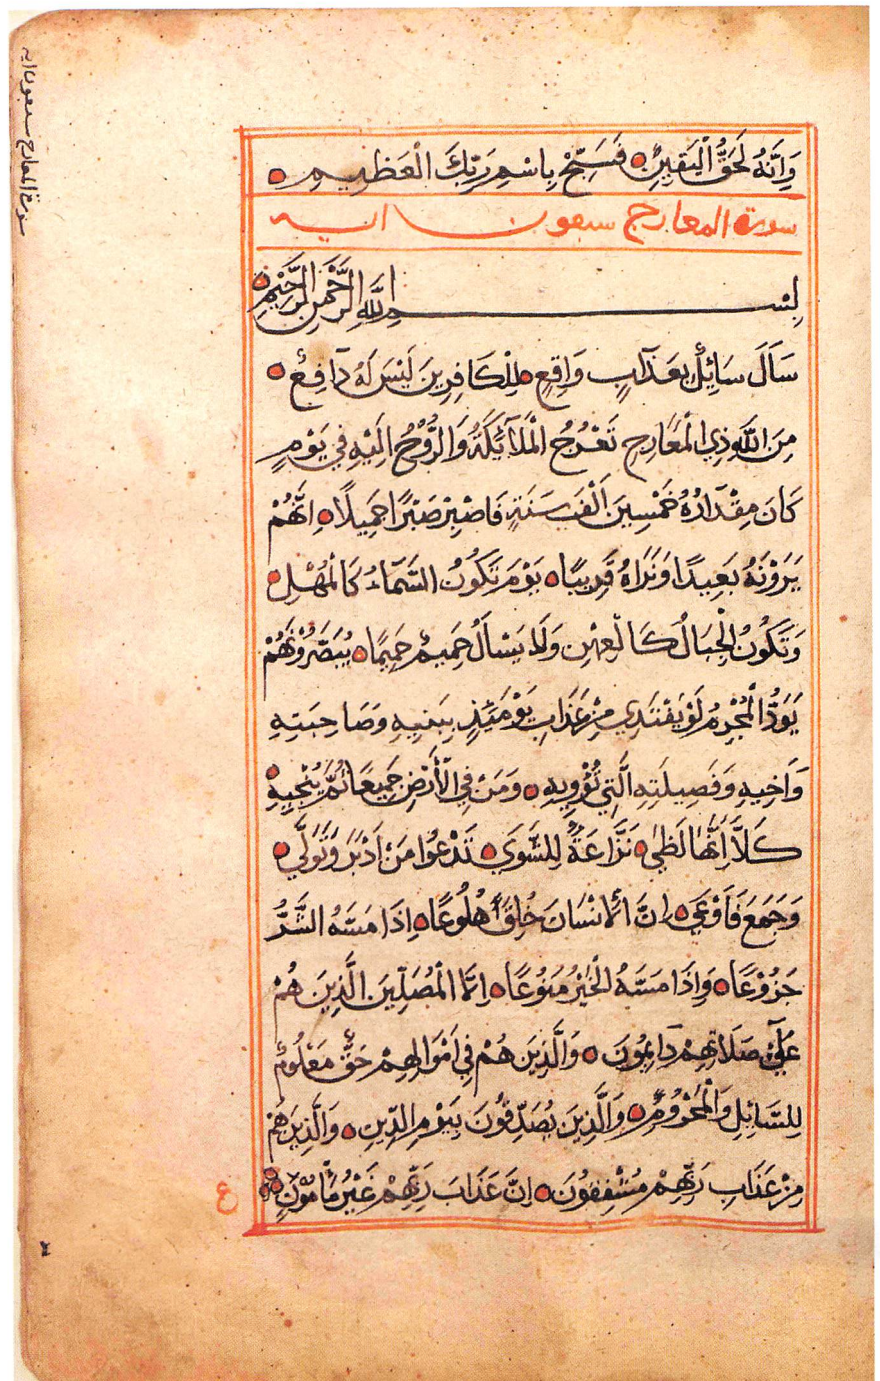 وَاِنَّهُ لَحَقُّ الْيَقِيْنِ فَسَبِّحْ بِاسْمِ رَبِّكَ الْعَظِيمِ
سورة المعارج سبعون اية
بِسْمِ اللّٰهِ الرَّحْمٰنِ الرَّحِيْمِ
سَاَلَ سَايِٕلٌ بِعَذَابٍ وَاقِعٍ لِلْكَافِرِينَ لَيْسَ لَهُ دَافِعٌ
مِنَ اللّٰهِ ذِي الْمَعَارِجِ تَعْرُجُ الْمَلَآئِكَةُ وَالرُّوْحُ اِلَيْهِ فِي يَوْمٍ
كَانَ مِقْدَارُهُ خَمْسِينَ اَلْفَ سَنَةٍ فَاصْبِرْ صَبْرًا جَمِيلًا اِنَّهُمْ
يَرَوْنَهُ بَعِيدًا وَنَرَاهُ قَرِيبًا يَوْمَ تَكُوْنُ السَّمَآءُ كَالْمُهْلِ
وَتَكُوْنُ الْجِبَالُ كَالْعِهْنِ وَلَا يَسْاَلُ حَمِيمٌ حَمِيمًا يُبَصَّرُوْنَهُمْ
يَوَدُّ الْمُجْرِمُ لَوْ يَفْتَدِي مِنْ عَذَابِ يَوْمَئِذٍ بِبَنِيهِ وَصَاحِبَتِهِ
وَاَخِيهِ وَفَصِيلَتِهِ الَّتِي تُؤْوِيهِ وَمَنْ فِي الْاَرْضِ جَمِيعًا ثُمَّ يُنْجِيهِ
كَلَّا اِنَّهَا لَظٰي نَزَّاعَةً لِلشَّوَي تَدْعُوا مَنْ اَدْبَرَ وَتَوَلَّي
وَجَمَعَ فَاَوْعَي اِنَّ الْاِنْسَانَ خُلِقَ هَلُوعًا اِذَا مَسَّهُ الشَّرُّ
جَزُوْعًا وَاِذَا مَسَّهُ الْخَيْرُ مَنُوْعًا اِلَّا الْمُصَلِّينَ الَّذِينَ هُمْ
عَلَيٰ صَلَاتِهِمْ دَايِمُونَ وَالَّذِينَ هُمْ فِي اَمْوَالِهِمْ حَقٌّ مَعْلُومٌ
لِلسَّايِٕلِ وَالْمَحْرُوْمِ وَالَّذِينَ يُصَدِّقُوْنَ بِيَوْمِ الدِّينِ وَالَّذِينَ هُمْ
مِنْ عَذَابِ رَبِّهِمْ مُشْفِقُونَ اِنَّ عَذَابَ رَبِّهِمْ غَيْرُ مَاْمُوْنٍ
ع
سورة المعارج سبعون اية